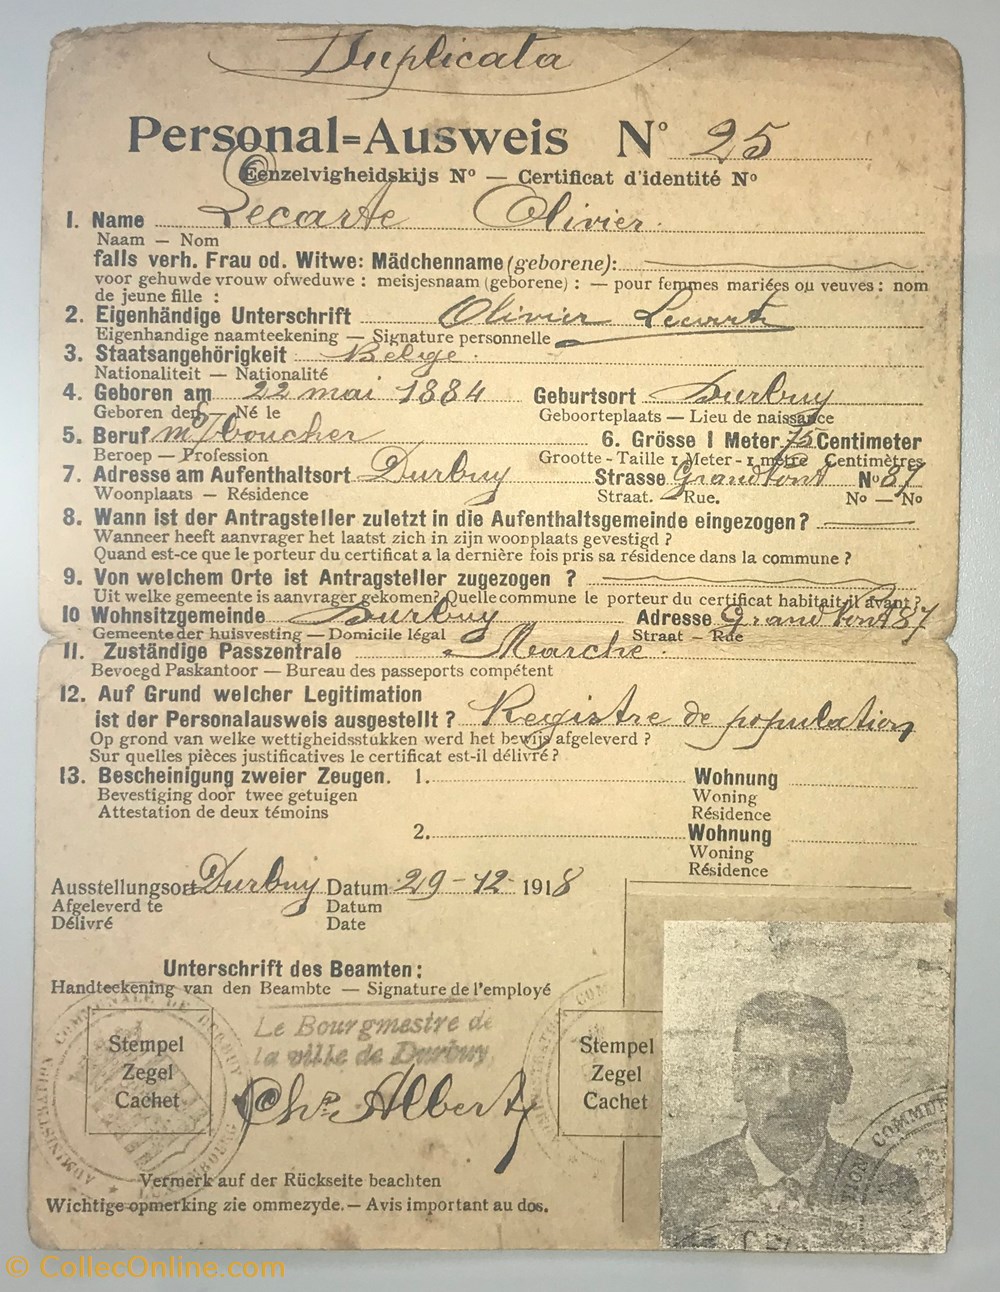 Duplicata
Personal=Ausweis Nº 25
Eenzelvigheidskijs Nº — Certificat d'identité Nº
1. Name Lecarte Olivier.
Naam — Nom
falls verh. Frau od. Witwe: Mädchenname (geborene):
voor gehuwde vrouw ofweduwe : meisjesnaam (geborene) : — pour femmes mariées ou veuves : nom
de jeune fille :
2. Eigenhändige Unterschrift Olivier Lecarte
Eigenhandige naamteekening — Signature personnelle
3. Staatsangehörigkeit Belge.
Nationaliteit — Nationalité
4. Geboren am 22 mai 1884 Geburtsort Durbuy
Geboren den Né le Geboorteplaats — Lieu de naissance
5. Beruf boucher 6. Grösse 1 Meter 75 Centimeter
Beroep — Profession Grootte - Taille 1 Meter - 1 mètre Centimètres
7. Adresse am Aufenthaltsort Durbuy Strasse Grand Pont Nº 87
Woonplaats — Résidence Straat. Rue. Nº — Nº
8. Wann ist der Antragsteller zuletzt in die Aufenthaltsgemeinde eingezogen?
Wanneer heeft aanvrager het laatst zich in zijn woonplaats gevestigd ?
Quand est-ce que le porteur du certificat a la dernière fois pris sa résidence dans la commune ?
9. Von welchem Orte ist Antragsteller zugezogen ?
Uit welke gemeente is aanvrager gekomen? Quelle commune le porteur du certificat habitait-il avant?
10 Wohnsitzgemeinde Durbuy Adresse Grand Pont 87
Gemeente der huisvesting — Domicile légal Straat — Rue
11. Zuständige Passzentrale Marche.
Bevoegd Paskantoor — Bureau des passeports compétent
12. Auf Grund welcher Legitimation
ist der Personalausweis ausgestellt ? Registre de population
Op grond van welke wettigheidsstukken werd het bewijs afgeleverd ?
Sur quelles pièces justificatives le certificat est-il délivré?
13. Bescheinigung zweier Zeugen. 1. Wohnung
Bevestiging door twee getuigen Woning
Attestation de deux témoins Résidence
2. Wohnung
Woning
Résidence
Ausstellungsort Durbuy Datum 29-12 1918
Afgeleverd te Datum
Délivré Date
Unterschrift des Beamten:
Handteekening van den Beambte — Signature de l'employé
Le Bourgmestre de
la ville de Durbuy
Chs Albert
Stempel
Zegel
Cachet
Stempel
Zegel
Cachet
ADMINISTRATION COMMUNALE DE DURBUY
LUXEMBOURG
COMMUN
Vermerk auf der Rückseite beachten
Wichtige opmerking zie ommezyde. — Avis important au dos.
© CollecOnline.com